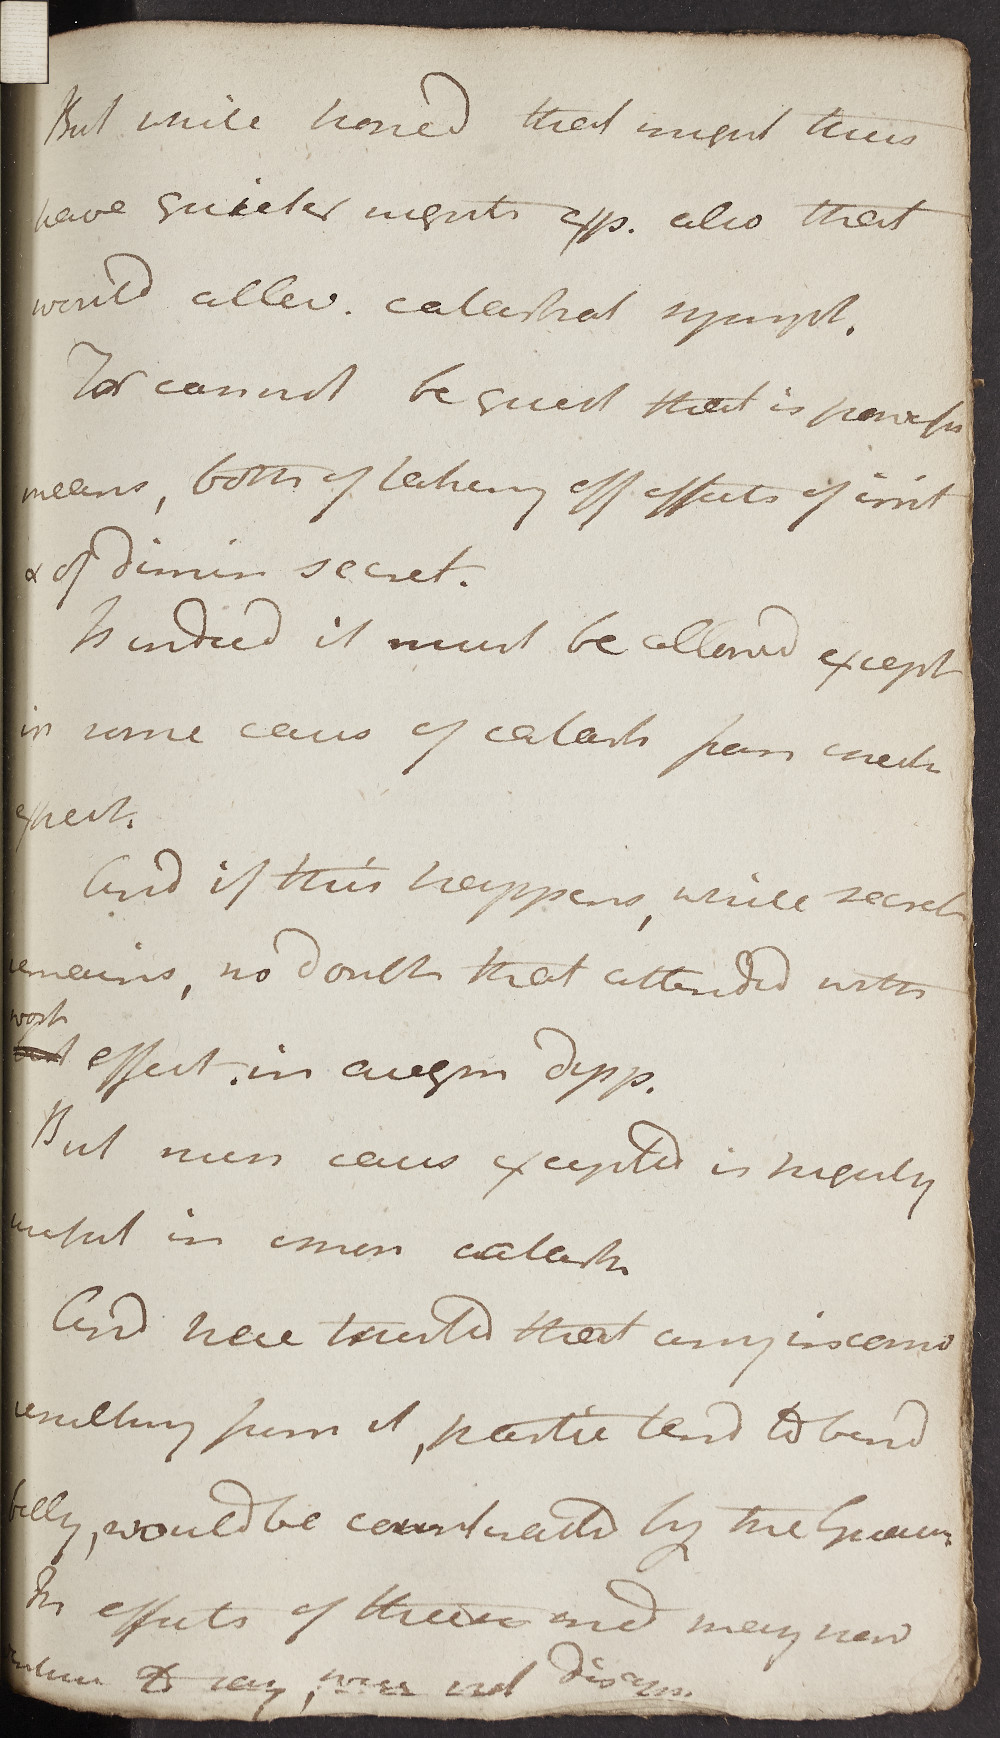 But while hoped that might thus
have quieter nights exp. also that
would allev. catarrhal sympt.
For cannot be quest that is powerful
means, both of taking off effects of irrit
& of dimin secret.
Is indeed it must be allowed except
in some cases of catarrh from
expect.
And if this happens, while secret
remains, no doubt that attended with
worst effect. in augm dysp.
But these cases excepted is highly
useful in common catarrh
And here trusted that any inconv
resulting from it, partic tend to bind
belly, would be counteracted by the
The effects of these med may now
venture to say, were not disapp.